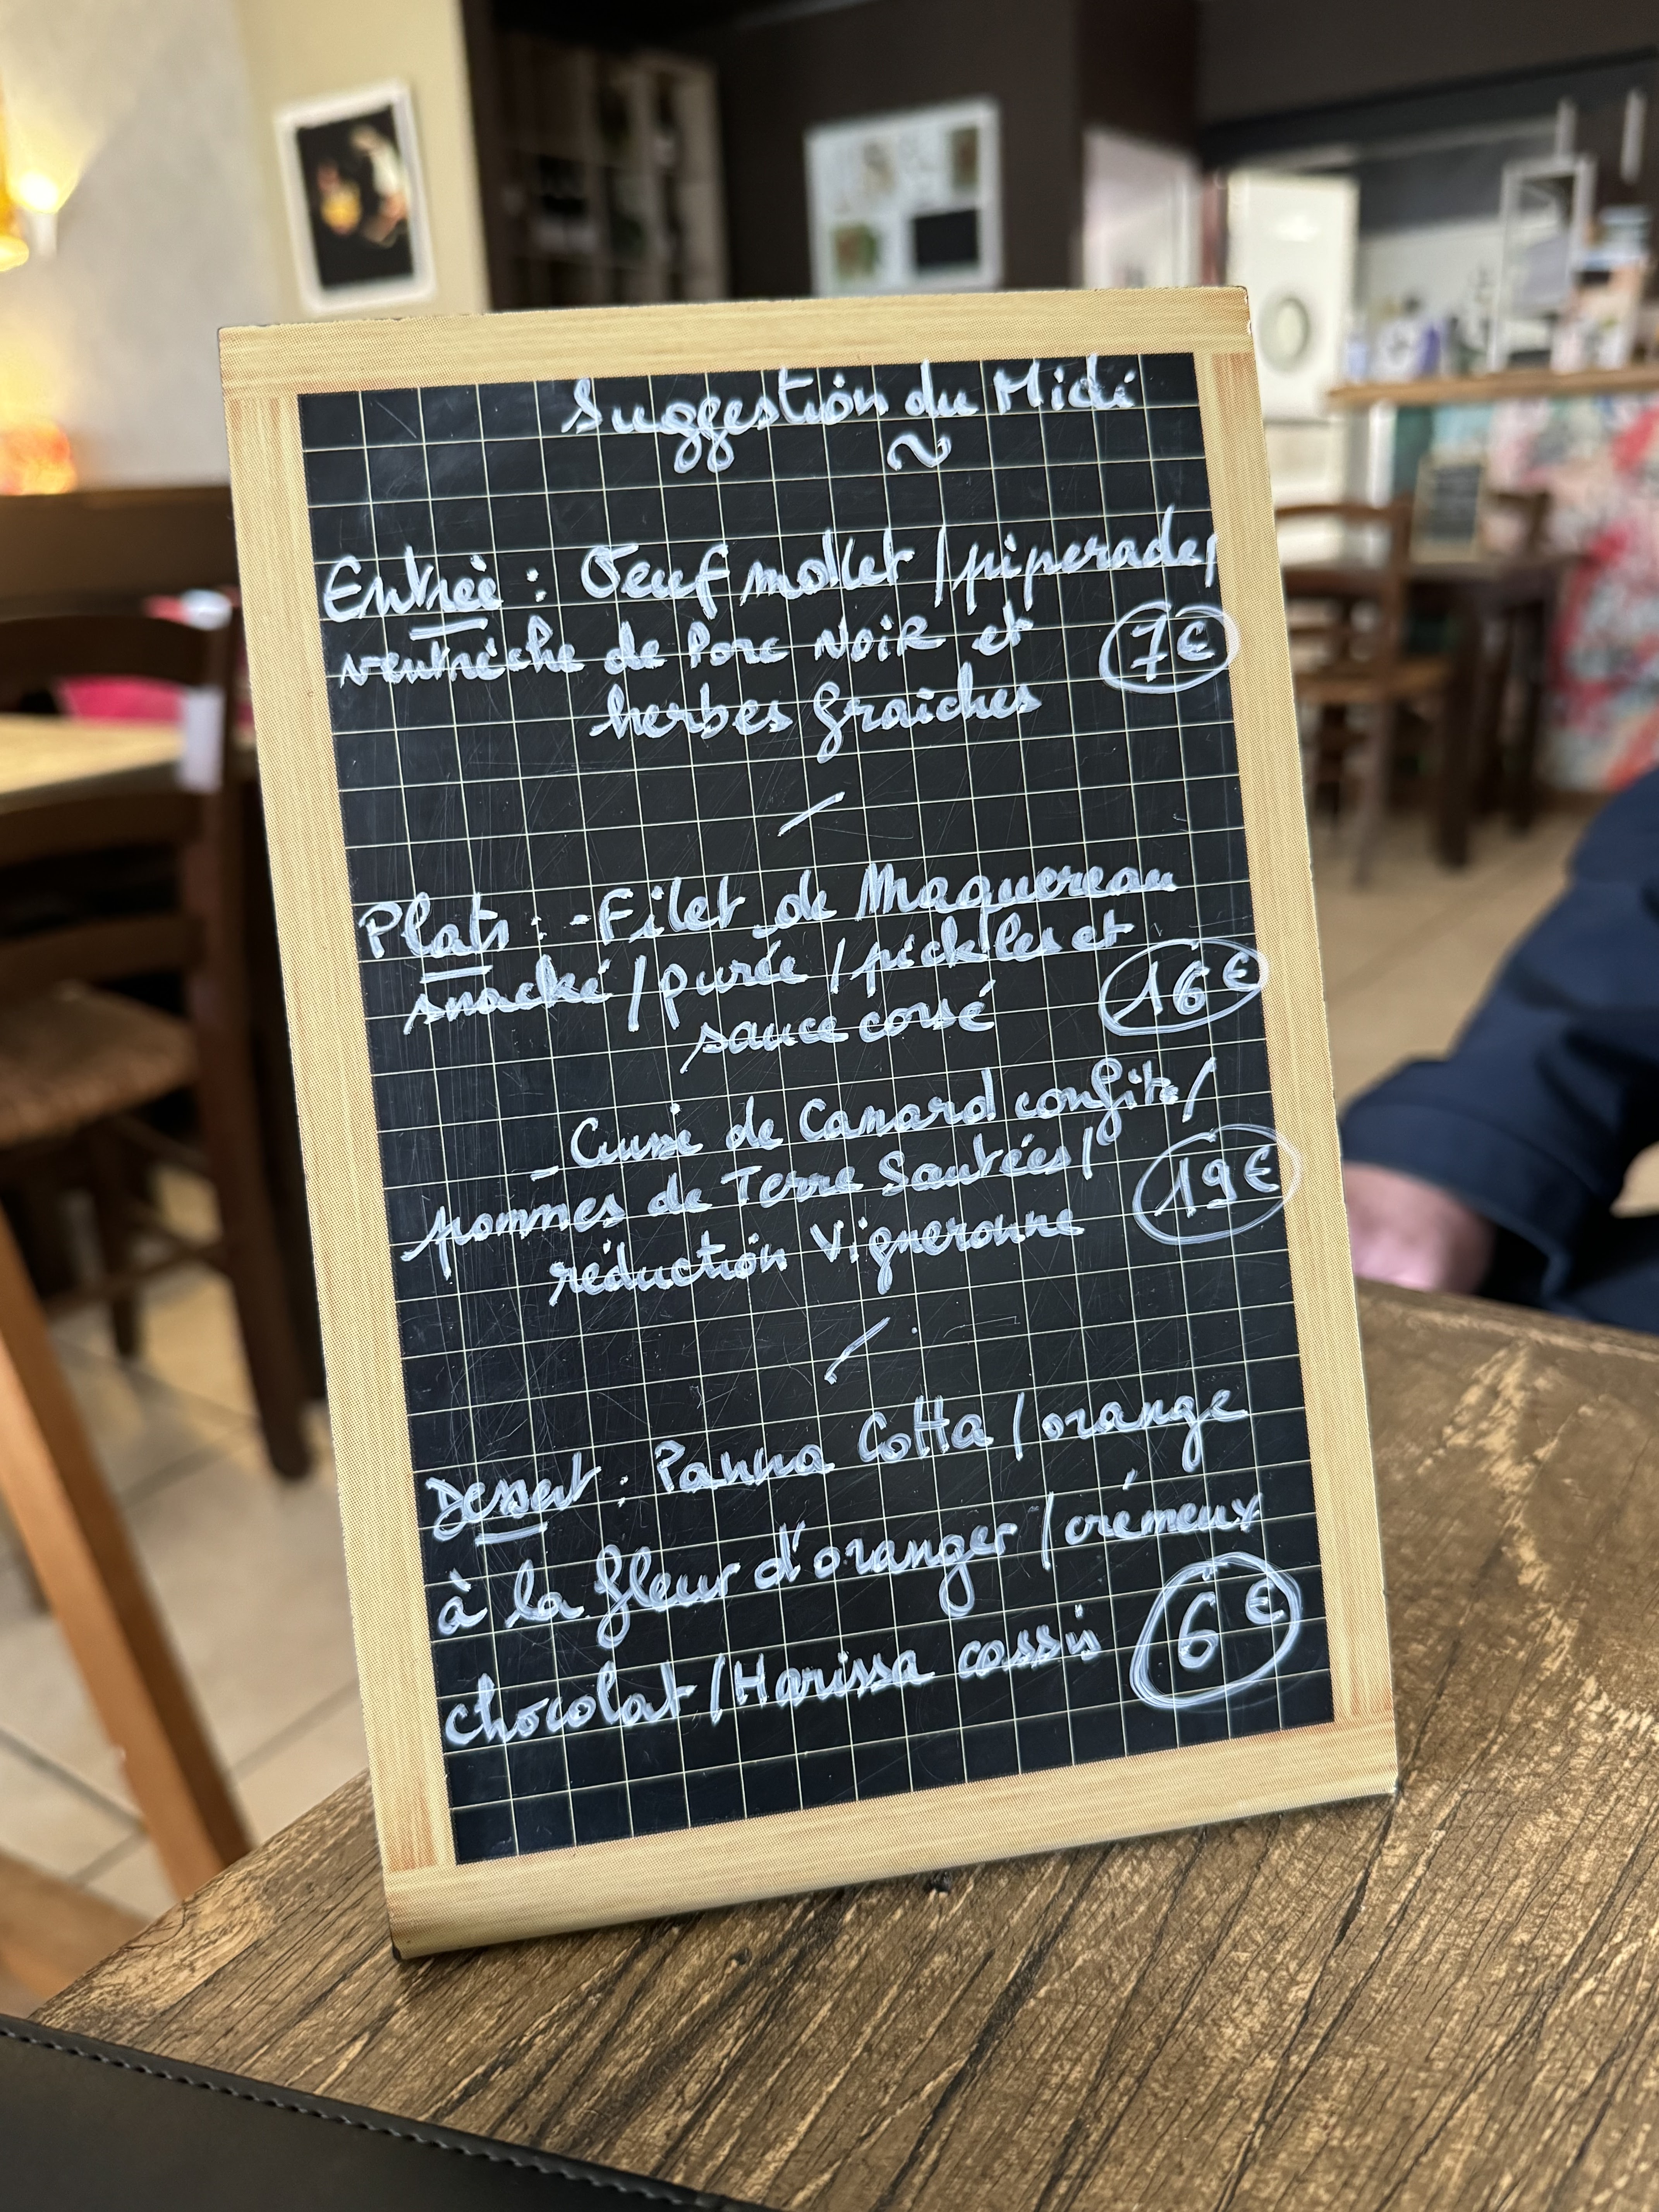 Suggestion du Midi
~
Entrée : Oeuf mollet / piperade /
ventrèche de Porc NOIR et
7€
herbes fraîches
/
Plats : - Filet de Maquereau
snacké / purée / pickles et
16€
sauce corsé
- Cuisse de Canard confite /
pommes de Terre Sautées /
19€
réduction Vigneronne
/
Dessert : Panna Cotta / orange
à la fleur d'oranger / crémeux
chocolat / Harissa cassis
6€